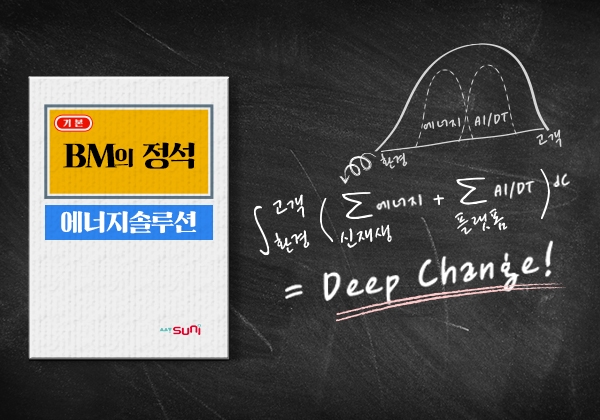 기본
BM의 정석
에너지솔루션
SUNI
에너지 AI/DT
환경 고객
∫ 고객 환경 ( ∑ 신재생 에너지 + ∑ 플랫폼 AI/DT ) dC
= Deep Change!